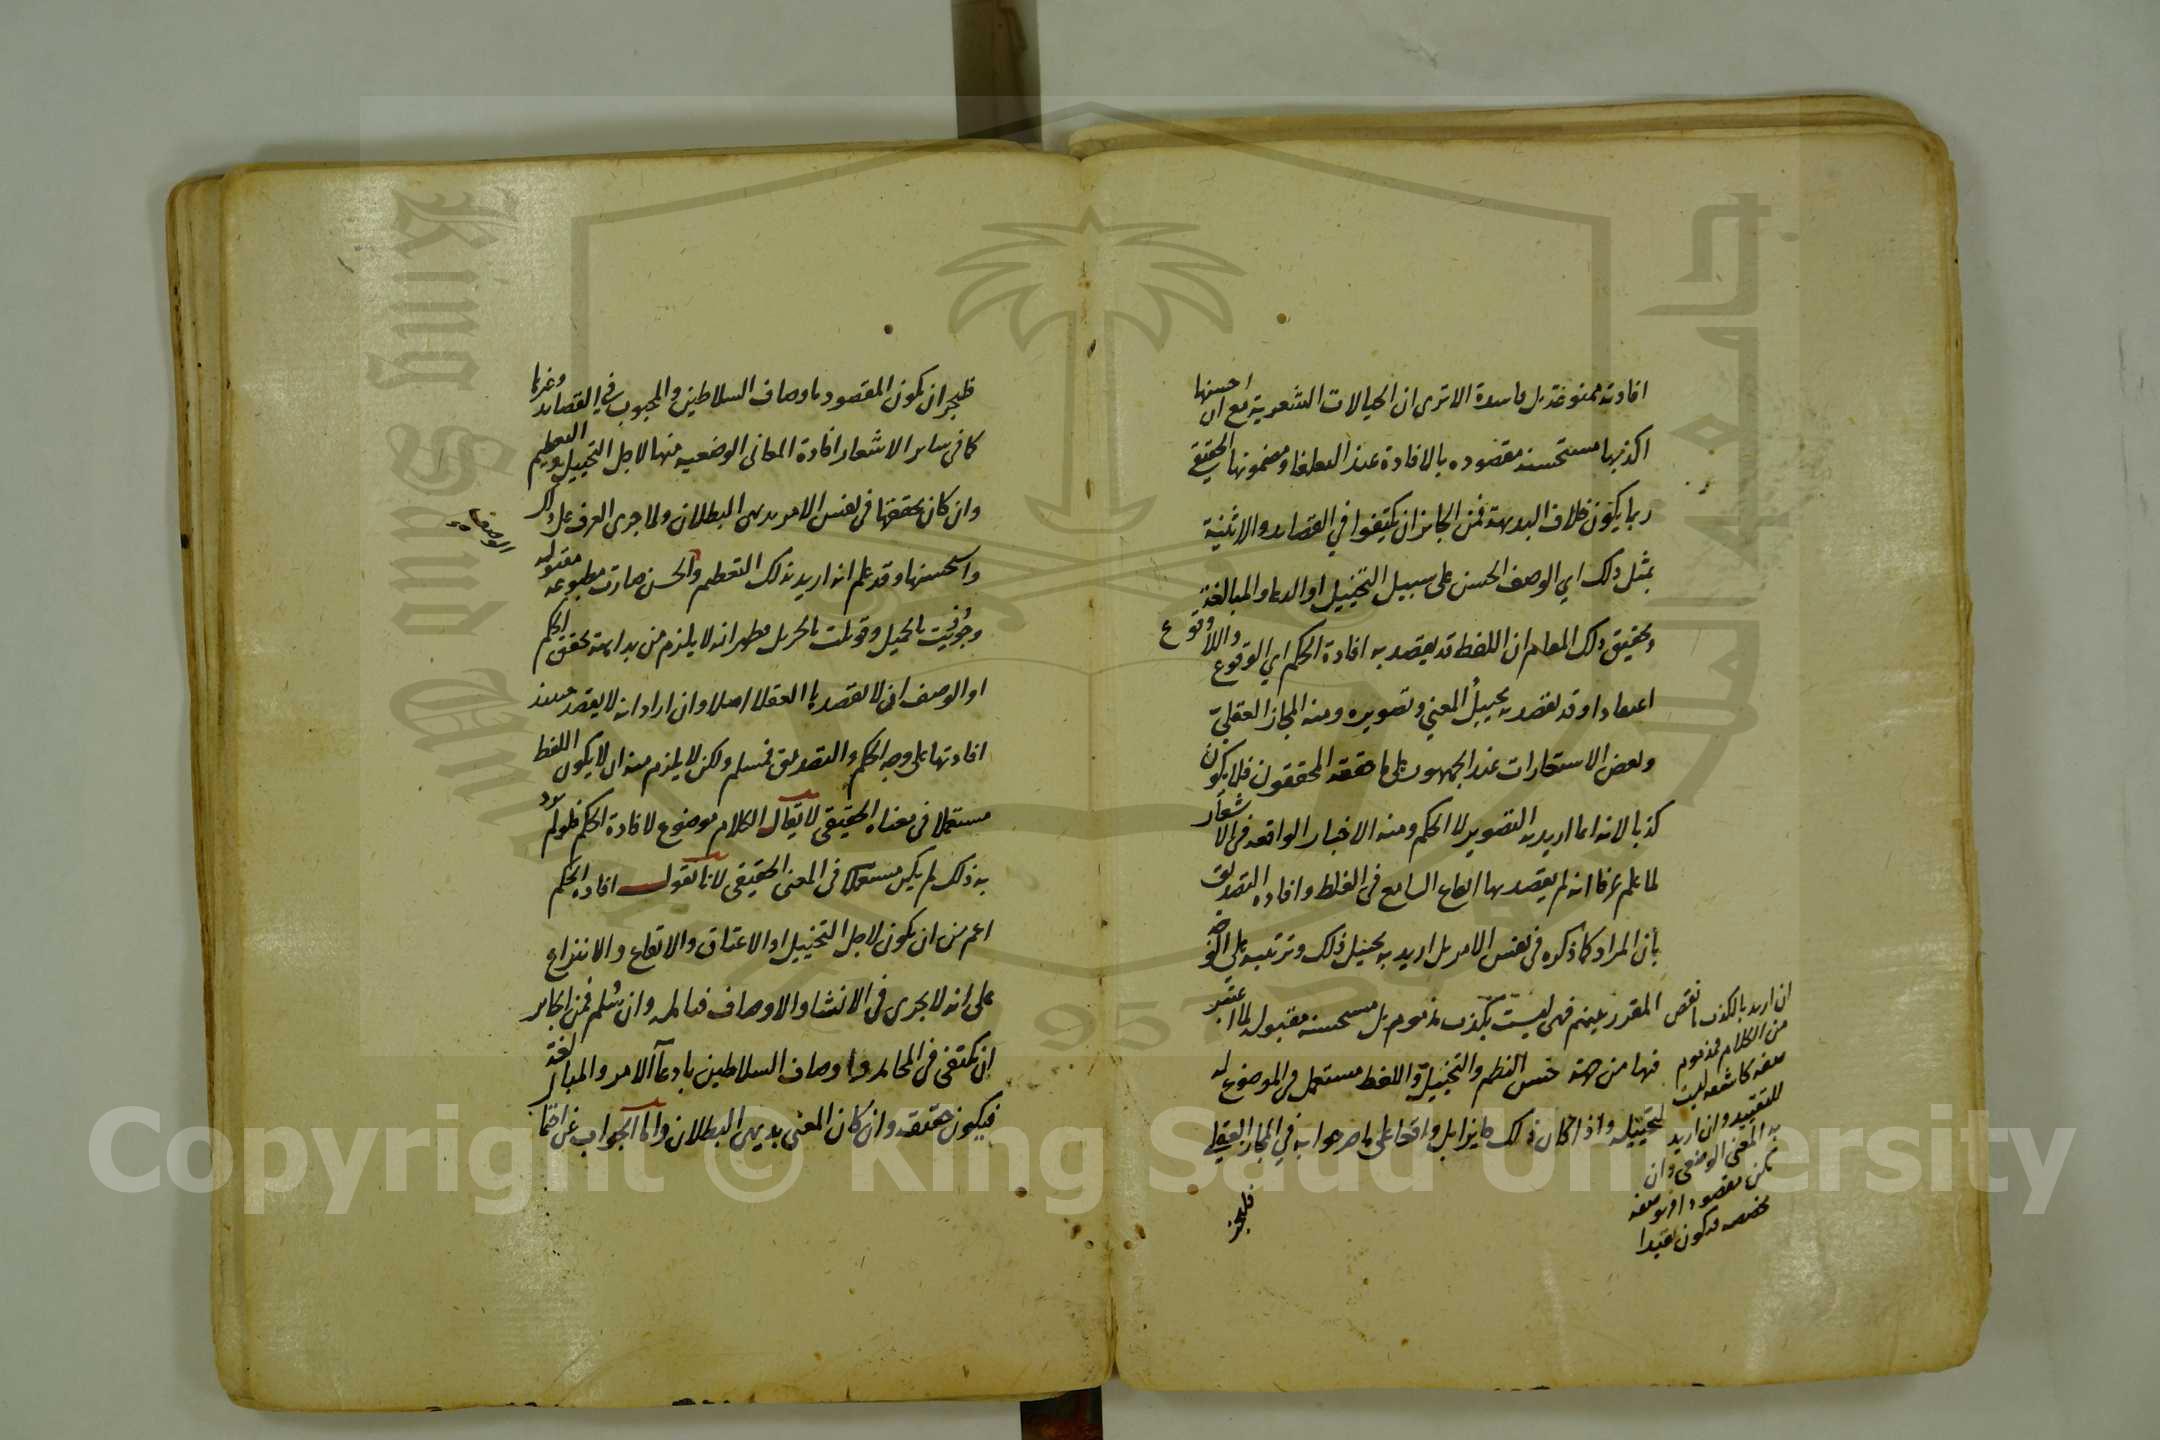 افادته ممنوعة بل فاسدة الا ترى ان الخيالات الشعرية مع ان احسنها
اكذبها مستحسنة مقصوده بالافادة عند البلغا ومضمونها الحقيقي
ربما يكون خلاف البديهة فمن الجائز ان يكتفوا في القصايد والاثنية
بمثل ذلك اي الوصف الحسن على سبيل التخييل او الدعا والمبالغة
وتحقيق ذلك المقام ان اللفظ قد يقصد به افادة الحكم اي الوقوع واللا وقوع
اعتقادا وقد يقصد به تخييل المعني وتصويره ومنه المجاز العقلي
وبعض الاستعارات عند الجمهور على ما حققه المحققون فلا يكون
كذبا لانه انما اريد به التصوير لا الحكم ومنه الاخبار الواقعة في الاشعار
لما علم عرفا انه لم يقصد بها ايقاع السامع في الغلط وافاده التصديق
بأن المراد كما ذكره في نفس الامر بل اريد به تخييل ذلك وترتيبه على
المقرر عندهم فهي ليست بكذب مذموم بل مستحسنة مقبولة لما اعتبر
فيها من جهة حسن النظم والتخييل واللفظ مستعمل في الموضوع له
لتخييله واذا كان ذلك جايزا بل واقعا على ما صرحوا به في المجاز العقلي
ان اريد بالكذب
من الكلام فمذموم
صفة كاشفة ليست
للتقييد وان اريد
به المعنى الوضعي وان
مقصود
مخصصه فيكون تقييدا
فليجز
فليجز ان يكون المقصود باوصاف السلاطين والمحبوب في القصائد وغيرها
كما في ساير الاشعار افادة المعاني الوضعيه منها لاجل التخييل والتعظيم
وان كان تحققها في نفس الامر بديهي البطلان ولما جرى العرف على ذلك
واستحسنها وقد علم انه اريد بذلك التعظيم والحسن صارت مطبوعه مقبوله
وجوزيت بالجميل وقوبلت بالجزيل فظهر انه لا يلزم من بداهة تحقق الحكم
او الوصف ان لا يقصد بها العقلا اصلا وان اراد انه لا يقصد حينئذ
افادتها على وجه الحكم والتصديق فمسلم ولكن لا يلزم منه ان لا يكون اللفظ
مستعملا في معناه الحقيقي لا يقال الكلام موضوع لافادة الحكم فلو لم يرد
به ذلك لم يكن مستعملا في المعنى الحقيقي لانا نقول افاده الحكم
اعم من ان يكون لاجل التخييل او الاعتقاد والايقاع والانتزاع
على انه لا يجري في الانشا والاوصاف وان سُلم فمن الجايز
ان يكتفى في المحامد واوصاف السلاطين بادعآ الامر والمبالغة
فيكون حقيقه وان كان المعنى بديهي البطلان واما الجواب عن